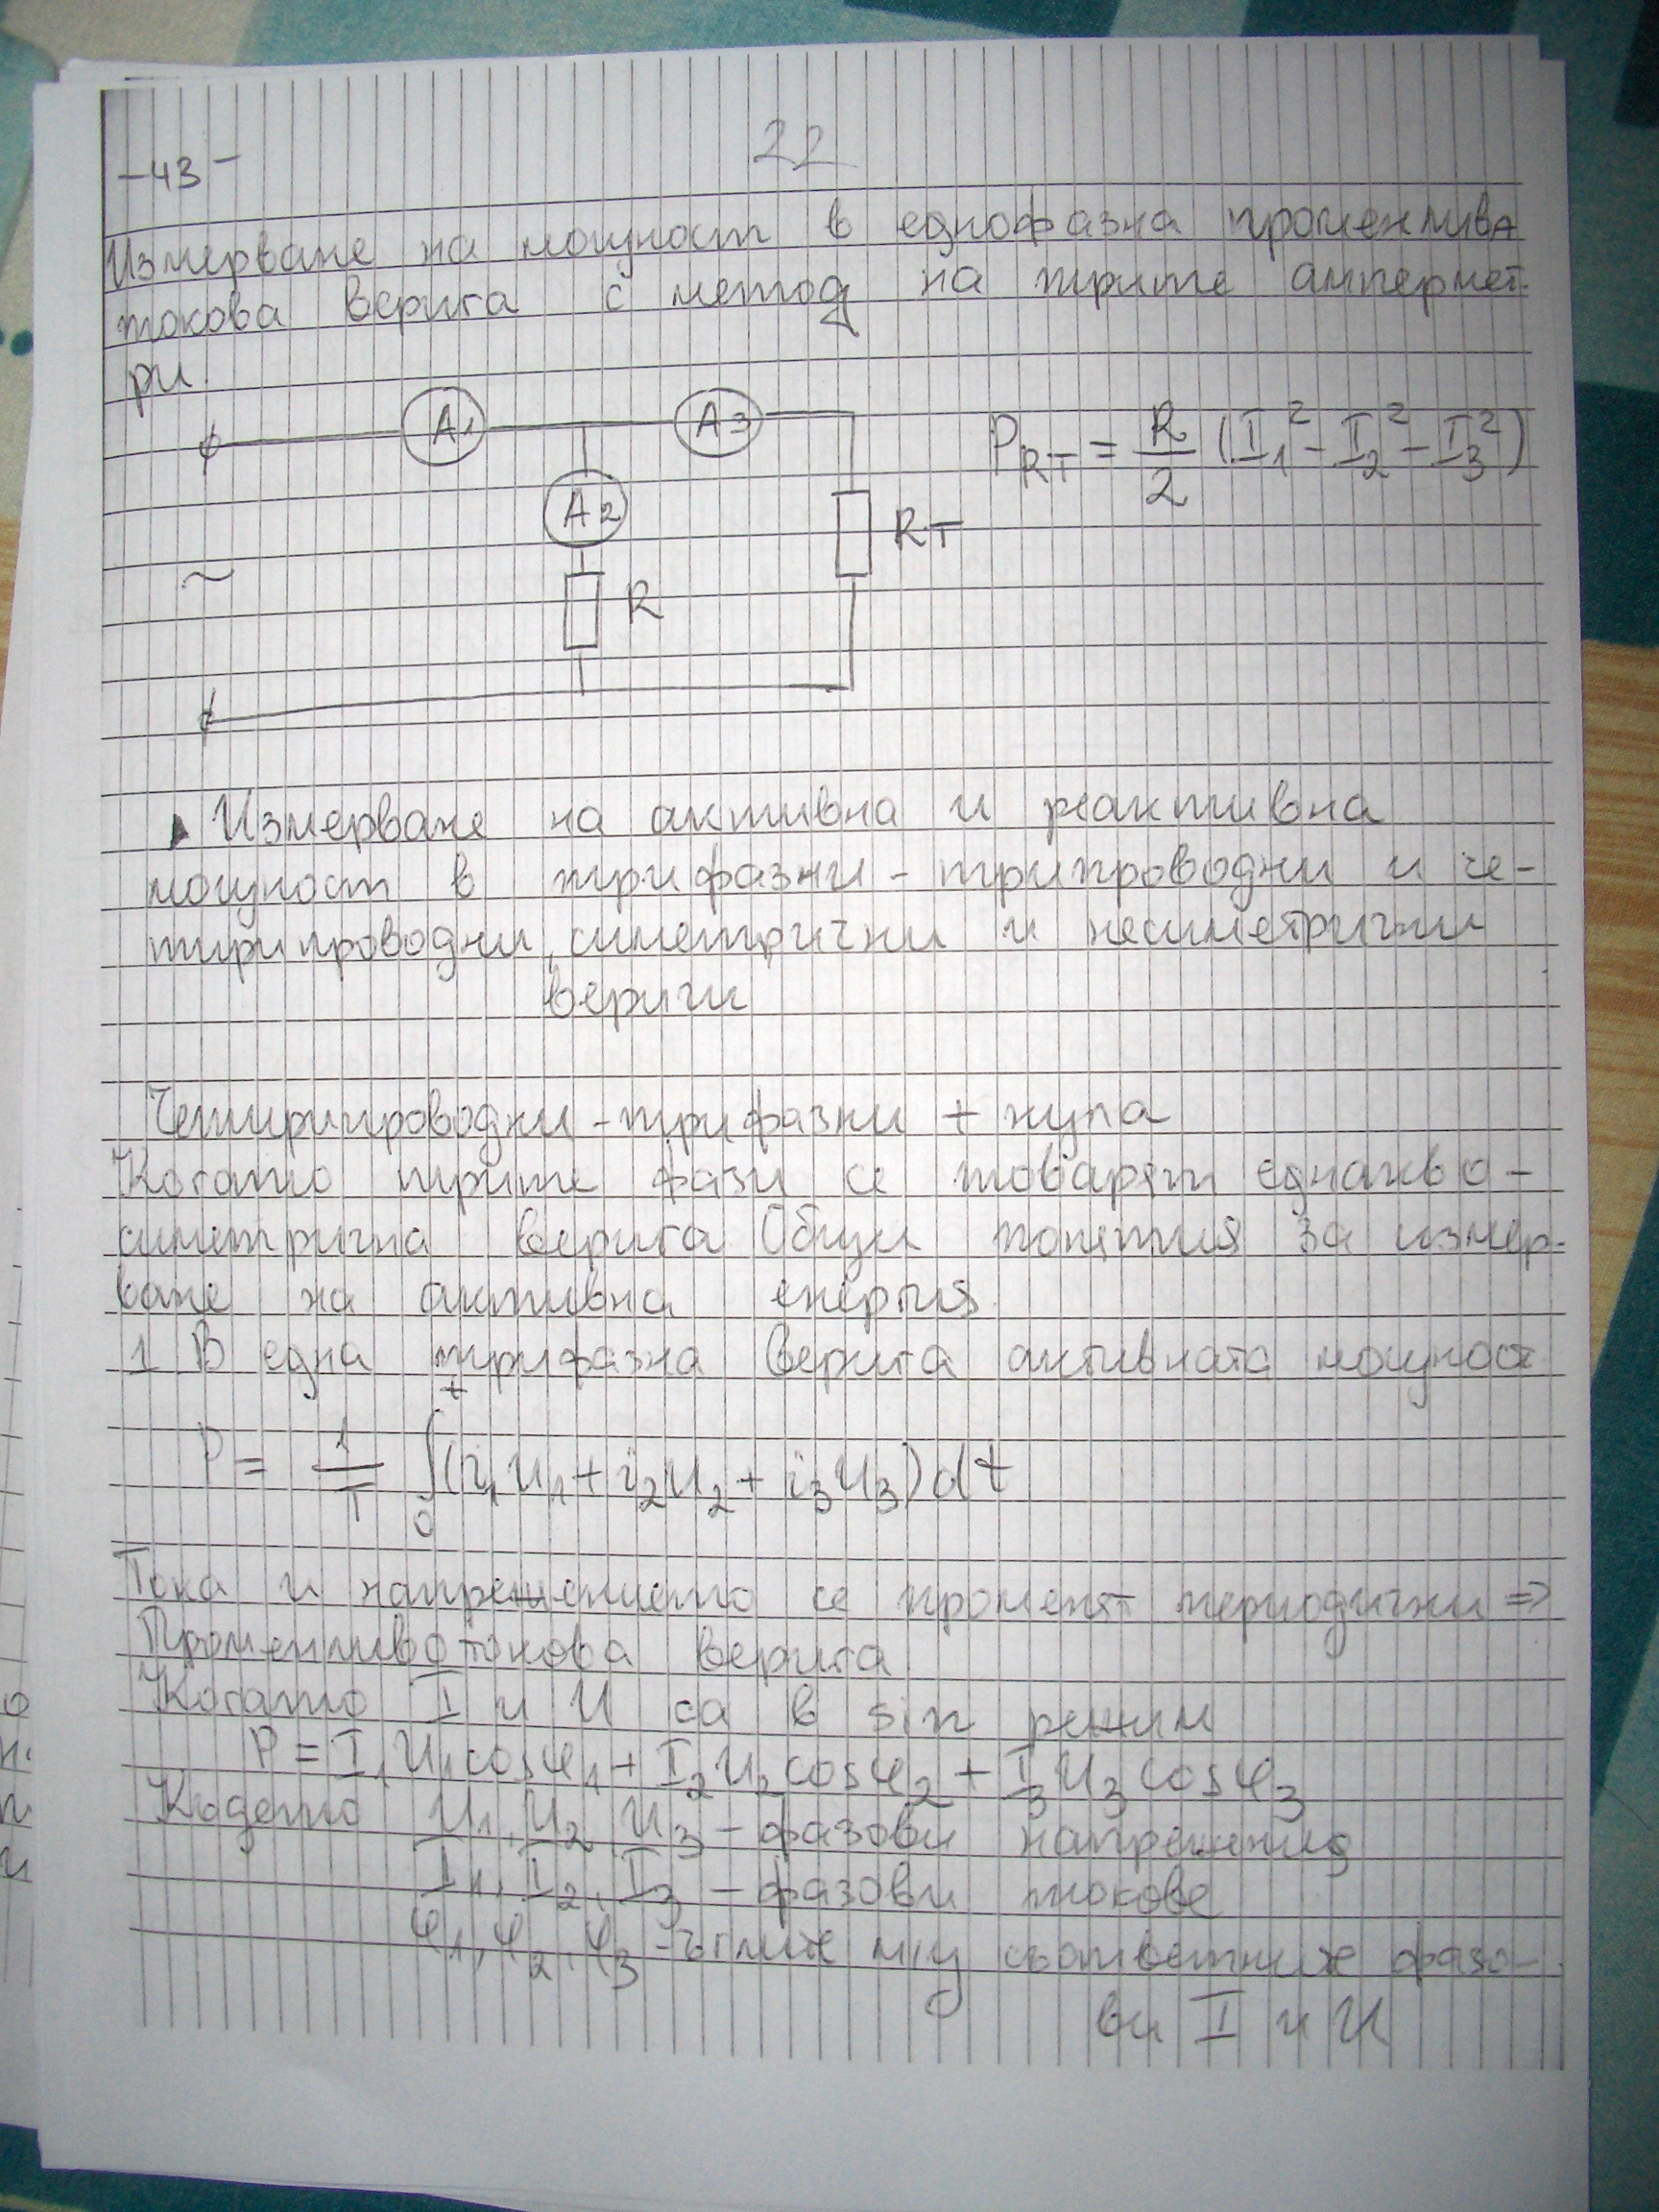 22
-43-
Измерване на мощност в еднофазна променлива
токова верига с метод на трите ампермет-
ри.
A1 A3
P_RT = R/2 (I1² - I2² - I3²)
A2
RT
~
R
Измерване на активна и реактивна
мощност в трифазни - трипроводни и че-
тирипроводни, симетрични и несиметрични
вериги
Четирипроводни - трифазни + нула
Когато трите фази се товарят еднакво -
симетрична верига Общи понятия за измер-
ване на активна енергия.
1 В една трифазна верига активната мощност
P = 1/T ∫₀ᵗ (i1u1 + i2u2 + i3u3) dt
Тока и напрежението се променят периодични =>
Променливотокова верига
Когато I и U са в sin режим
P = I1U1cosφ1 + I2U2cosφ2 + I3U3cosφ3
Където U1, U2, U3 - фазови напрежения
I1, I2, I3 - фазови токове
φ1, φ2, φ3 - ъглите м/у съответните фазо-
ви I и U